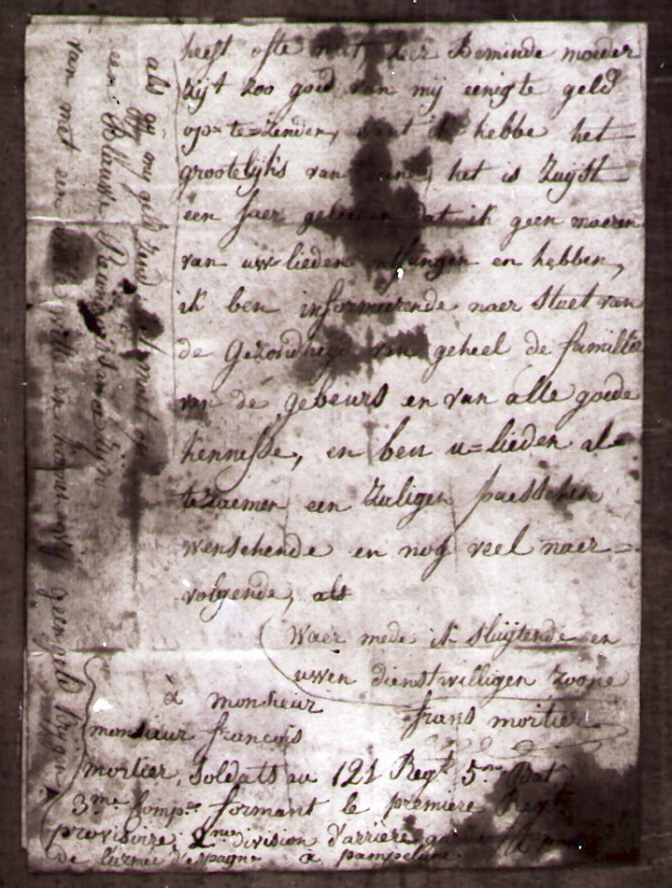 heeft ofte niet, zeer Beminde moeder
zijt zoo goed van mij eenigte geld
op=te=zenden, want ik hebbe het
grootelijks van, het is Zuijst
een Jaer geleeden dat ik geen maeren
van uw lieden ontfangen en hebben,
ik ben informeerende naer staet van
de Gezondheyd van geheel de familie
van de gebeurs en van alle goede
kennisse, en ben u=lieden al=
tezaemen een Zaligen paesschen
wenschende en nog veel naer=
volgende, als
Waer mede ik sluijtende en
uwen dienstwilligen zoone
frans mortier
à monsieur
monsieur francois
mortier, soldats au 121 Regt 5me Bat
3me Compe formant le premiere Regt
provisoire, 2me division d'arrière garde
de l'armée d'espagne à pampelune
als gij mij geld zend
een Blauwe
van met een geen geld krijgen